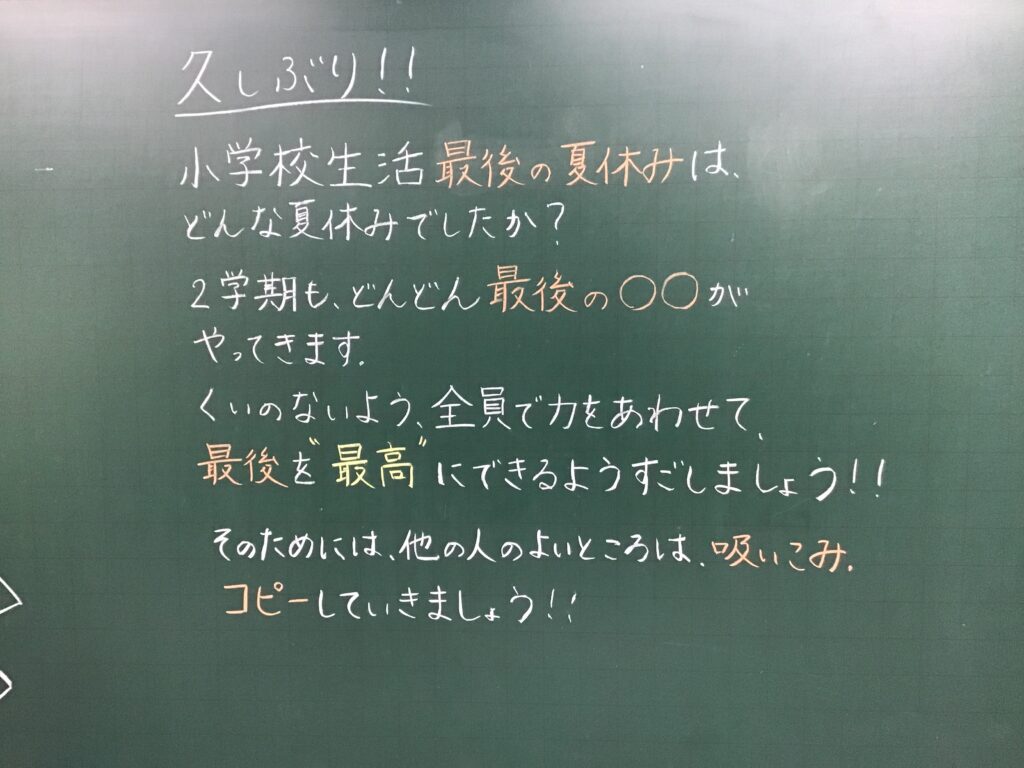 久しぶり!!
小学校生活最後の夏休みは、
どんな夏休みでしたか?
2学期も、どんどん最後の〇〇が
やってきます。
くいのないよう、全員で力をあわせて、
最後を"最高"にできるようすごしましょう!!
そのためには、他の人のよいところは、吸いこみ、
コピーしていきましょう!!